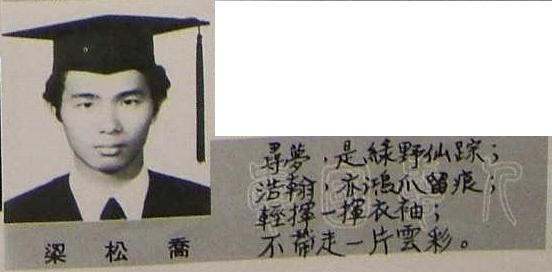 梁松喬
尋夢，是綠野仙踪；
浩翰，亦鴻爪留痕；
輕揮一揮衣袖；
不帶走一片雲彩。